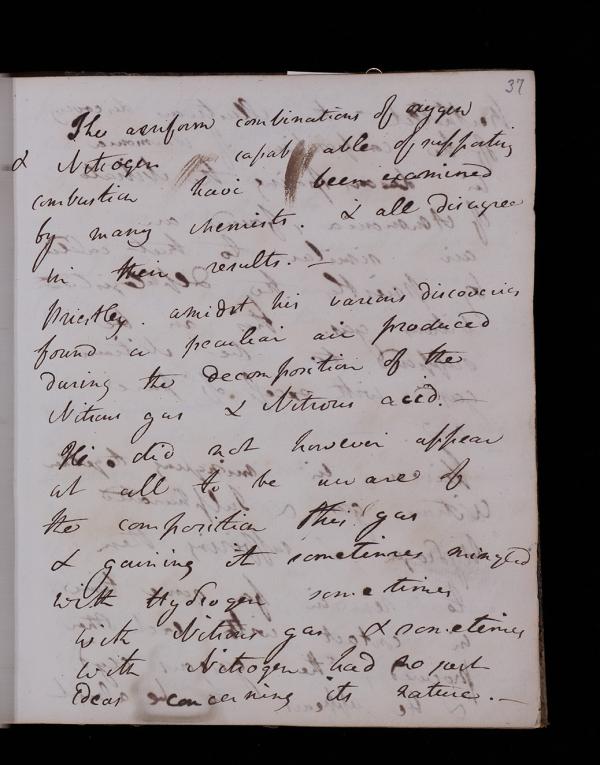 37
The aeriform combinations of oxygen
& Nitrogen capable of supporting
combustion have been examined
by many chemists. & all disagree
in their results. —
Priestley. amidst his various discoveries
found a peculiar air produced
during the decomposition of the
Nitrous gas & Nitrous acid.
He did not however appear
at all to be aware of
the composition this gas
& gaining it sometimes mingled
with Hydrogen sometimes
with Nitrous gas & sometimes
with Nitrogen had no just
ideas concerning its nature. —